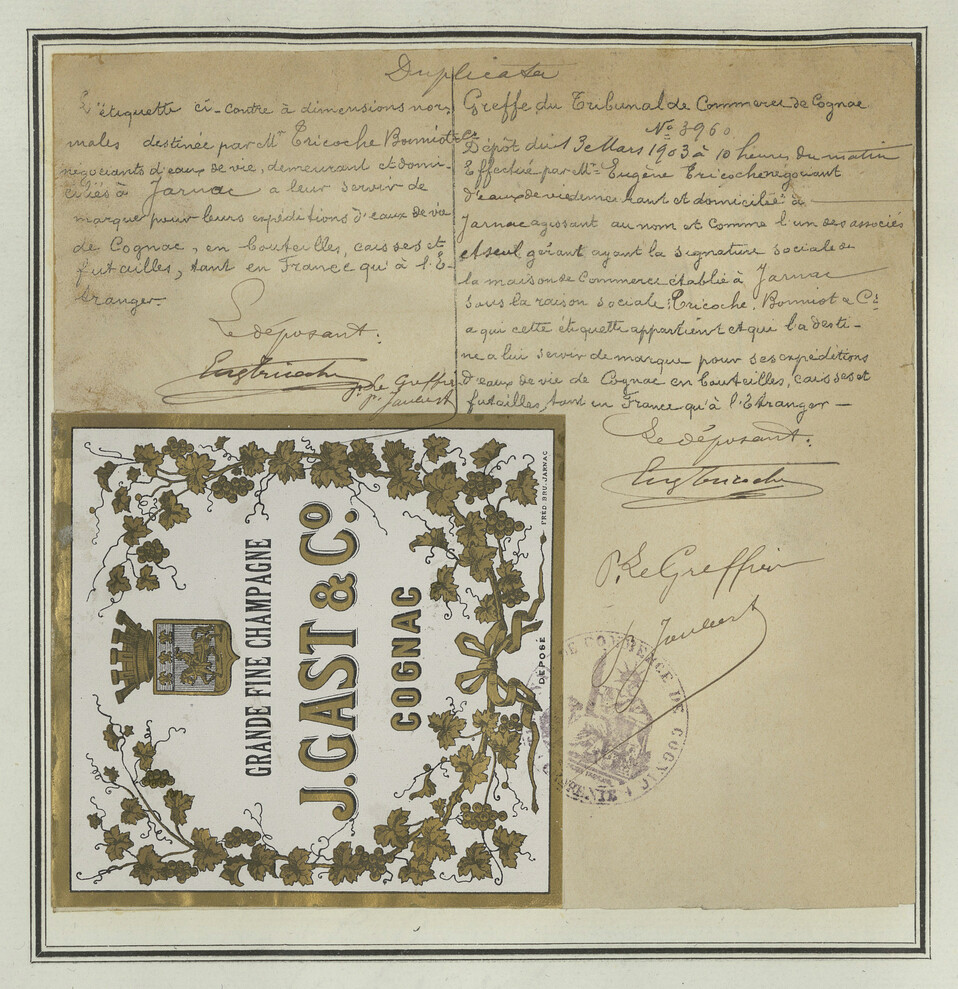 Duplicata
L'étiquette ci-contre à dimensions nor-
males destinée par Mrs Tricoche Bonniot & Cie
négociants d'eaux de vie, demeurant et domi-
ciliés à Jarnac a leur servir de
marque pour leurs expéditions d'eaux de vie
de Cognac, en bouteilles, caisses et
futailles, tant en France qu'à l'E-
tranger.
Le déposant:
Eug Tricoche
pr. le Greffier
Joubert
Greffe du Tribunal de Commerce de Cognac
No 3960
Dépôt du 13 Mars 1903 à 10 heures du matin
Effectué par Mr Eugène Tricoche négociant
d'eaux de vie demeurant et domicilié à
Jarnac agissant au nom et comme l'un des associés
et seul gérant ayant la signature sociale de
la maison de Commerce établie à Jarnac
sous la raison sociale: Tricoche, Bonniot & Cie
a qui cette étiquette appartient et qui la desti-
ne a lui servir de marque pour ses expéditions
d'eaux de vie de Cognac en bouteilles, caisses et
futailles, tant en France qu'à l'Etranger —
Le déposant:
Eug Tricoche
P. Le Greffier
Joubert
GRANDE FINE CHAMPAGNE
J. GAST & Co.
COGNAC
DÉPOSÉ
FRÉD. BRU. JARNAC
DE COMMERCE DE COGNAC